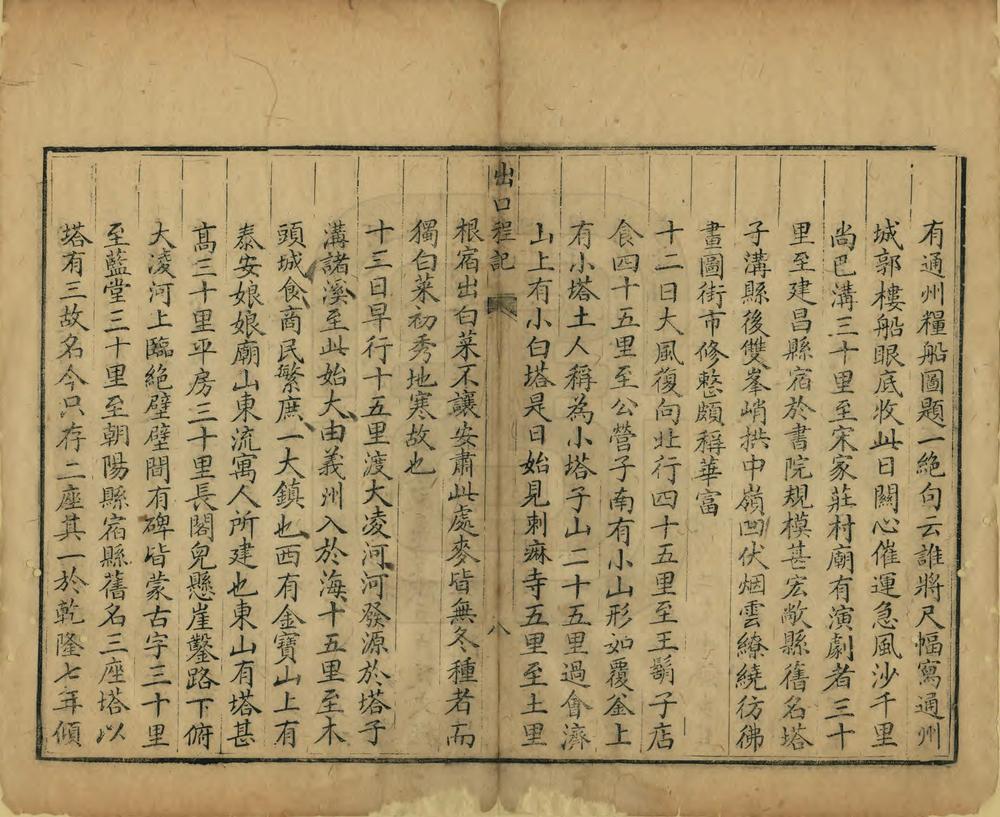 有通州糧船圖題一絕句云誰將尺幅寫通州
城郭樓船眼底收此日關心催運急風沙千里
尚巴溝三十里至宋家莊村廟有演劇者三十
里至建昌縣宿於書院規模甚宏敞縣舊名塔
子溝縣後雙峯峭拱中嶺凹伏烟雲繚繞彷彿
畫圖街市修整頗稱華富
十二日大風復向北行四十五里至王鬍子店
食四十五里至公營子南有小山形如覆釜上
有小塔土人稱為小塔子山二十五里過會濟
山上有小白塔是日始見刺麻寺五里至土里
出口程記
八
根宿出白菜不讓安肅此處麥皆無冬種者而
獨白菜初秀地寒故也
十三日早行十五里渡大凌河河發源於塔子
溝諸溪至此始大由義州入於海十五里至木
頭城食商民繁庶一大鎮也西有金寶山上有
泰安娘娘廟山東流寓人所建也東山有塔甚
髙三十里平房三十里長閣兒懸崖鑿路下俯
大淩河上臨絕壁壁間有碑皆蒙古字三十里
至藍堂三十里至朝陽縣宿縣舊名三座塔以
塔有三故名今只存二座其一於乾隆七年傾